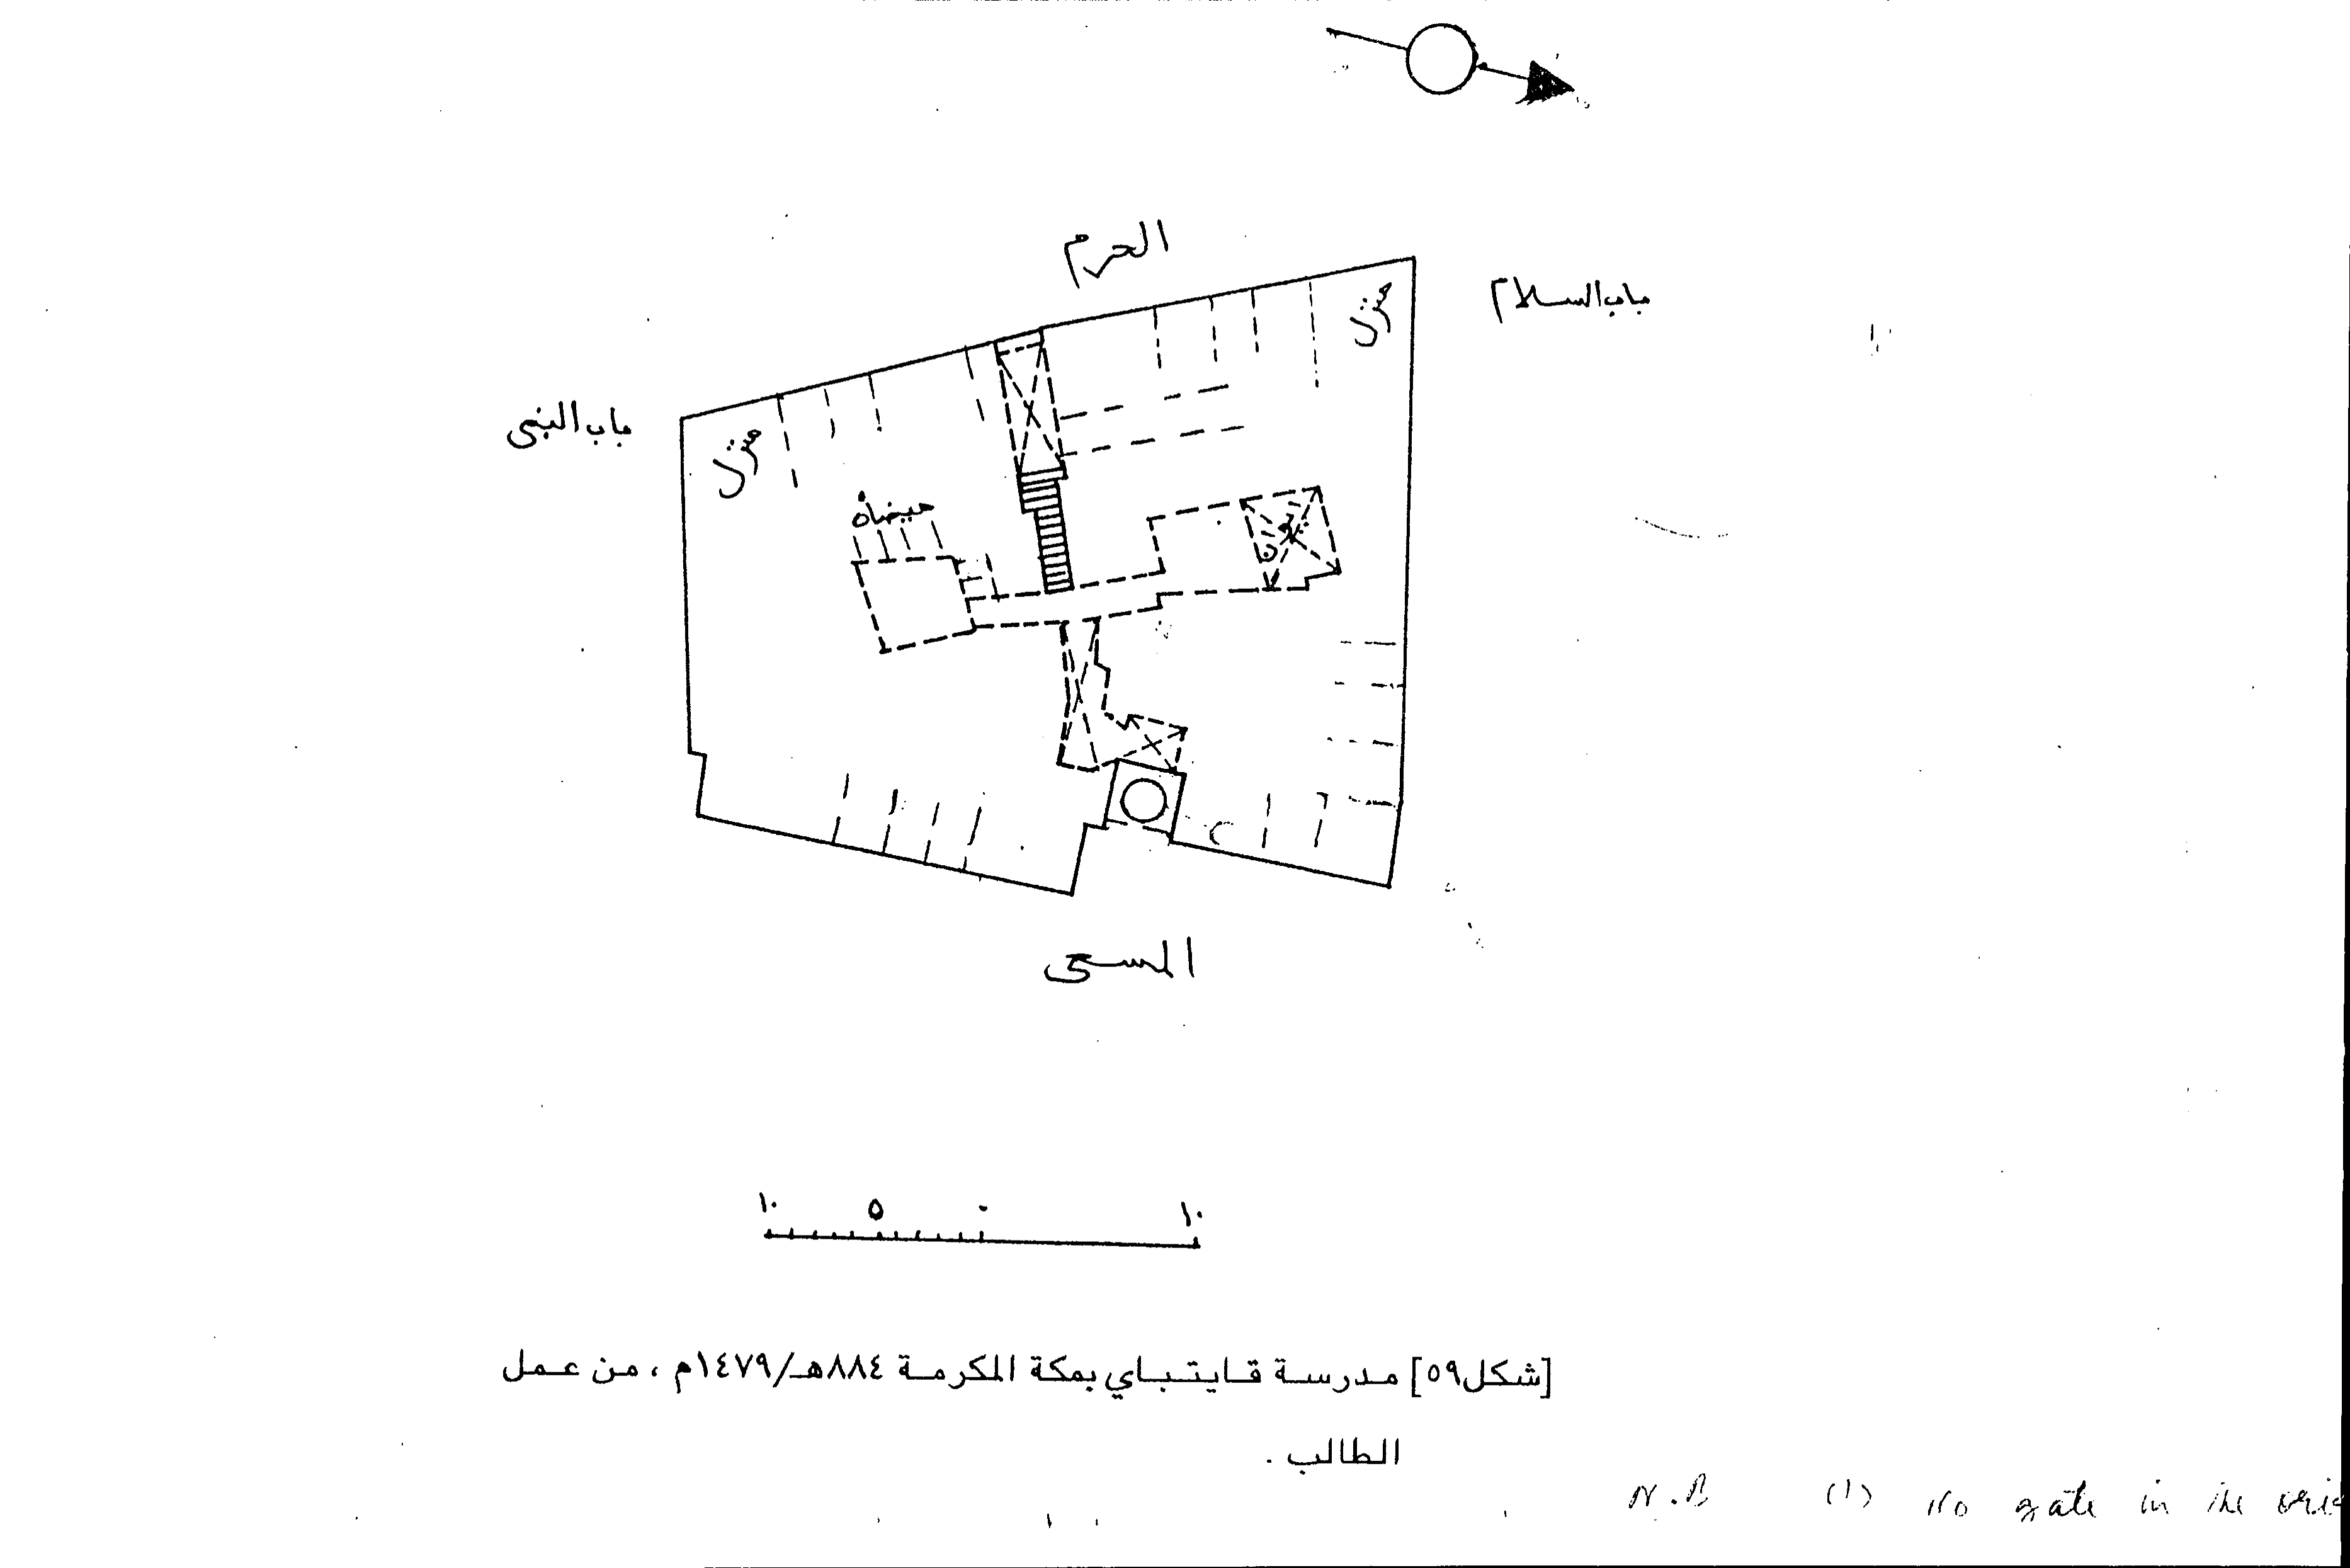 الحرم
باب السلام
منزل
باب النبى
منزل
ميضأة
المسعى
١٠ ٥ ٠ ١٠
[شكل٥٩] مدرسة قايتباي بمكة المكرمة ٨٨٤هـ/١٤٧٩م ، من عمل
الطالب .
N.B (1) No gate in the